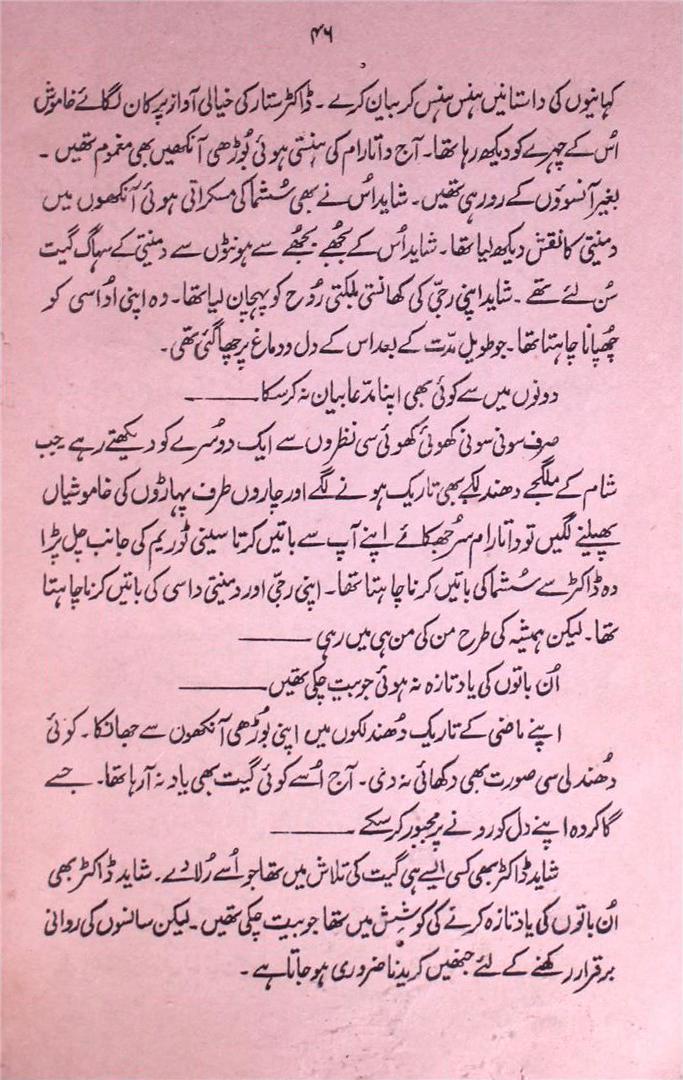 ۴۶
کہانیوں کی داستانیں ہنس ہنس کر بیان کرے ۔ ڈاکٹر ستار کی خیالی آواز پر کان لگائے خاموش
اُس کے چہرے کو دیکھ رہا تھا۔ آج داتا رام کی ہنستی ہوئی بُوڑھی آنکھیں بھی مغموم تھیں ۔
بغیر آنسوؤں کے رو رہی تھیں ۔ شاید اُس نے بھی سُشما کی مسکراتی ہوئی آنکھوں میں
دمنیتی کا نقش دیکھ لیا تھا۔ شاید اُس کے بُجھے بُجھے سے ہونٹوں سے دمنیتی کے سہاگ گیت
سُن لئے تھے ۔ شاید اپنی رجّی کی کھانستی بلکتی رُوح کو پہچان لیا تھا۔ وہ اپنی اُداسی کو
چُھپانا چاہتا تھا۔ جو طویل مدّت کے بعد اس کے دل و دماغ پر چھا گئی تھی۔
دونوں میں سے کوئی بھی اپنا مدّعا بیان نہ کر سکا ۔ـــــــــ
صرف سونی سونی کھوئی کھوئی سی نظروں سے ایک دوسُرے کو دیکھتے رہے جب
شام کے ملگجے دھندلکے بھی تاریک ہونے لگے اور چاروں طرف پہاڑوں کی خاموشیاں
پھیلنے لگیں تو داتا رام سر جُھکائے اپنے آپ سے باتیں کرتا سینی ٹوریم کی جانب چل پڑا
وہ ڈاکٹر سے سُشما کی باتیں کرنا چاہتا تھا۔ اپنی رجّی اور دمنیتی داسی کی باتیں کرنا چاہتا
تھا۔ لیکن ہمیشہ کی طرح من کی من ہی میں رہی ـــــــــ
اُن باتوں کی یاد تازہ نہ ہوئی جو بیت چکی تھیں ۔ـــــــــ
اپنے ماضی کے تاریک دُھندلکوں میں اپنی بُوڑھی آنکھوں سے جھانکا ۔ کوئی
دُھندلی سی صورت بھی دکھائی نہ دی۔ آج اُسے کوئی گیت بھی یاد نہ آ رہا تھا۔ جسے
گا کر وہ اپنے دل کو رونے پر مجبور کر سکے ـــــــــ
شاید ڈاکٹر بھی کسی ایسے ہی گیت کی تلاش میں تھا جو اُسے رُلا دے۔ شاید ڈاکٹر بھی
اُن باتوں کی یاد تازہ کرنے کی کوشش میں تھا جو بیت چکی تھیں ۔ لیکن سانسوں کی روانی
برقرار رکھنے کے لئے جنھیں کریدنا ضروری ہو جاتا ہے ۔